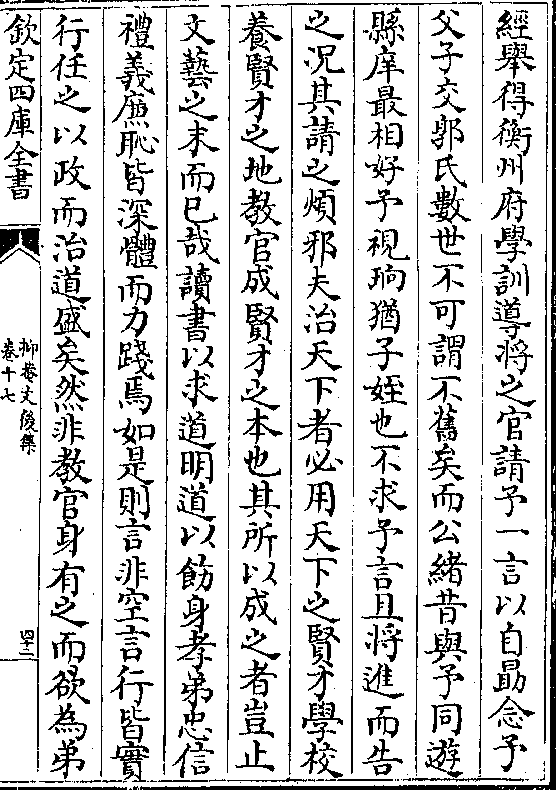 經舉得衡州府學訓導將之官請予一言以自勗念予
父子交郭氏數世不可謂不舊矣而公緒昔與予同遊
縣庠最相好予視珦猶子姪也不求予言且將進而告
之况其請之煩邪夫治天下者必用天下之賢才學校
養賢才之地教官成賢才之本也其所以成之者豈止
文藝之末而已哉讀書以求道明道以飭身孝弟忠信
禮義廉恥皆深體而力踐焉如是則言非空言行皆實
行任之以政而治道盛矣然非教官身有之而欲為弟
欽定四庫全書
抑菴文後集
卷十七
四十二